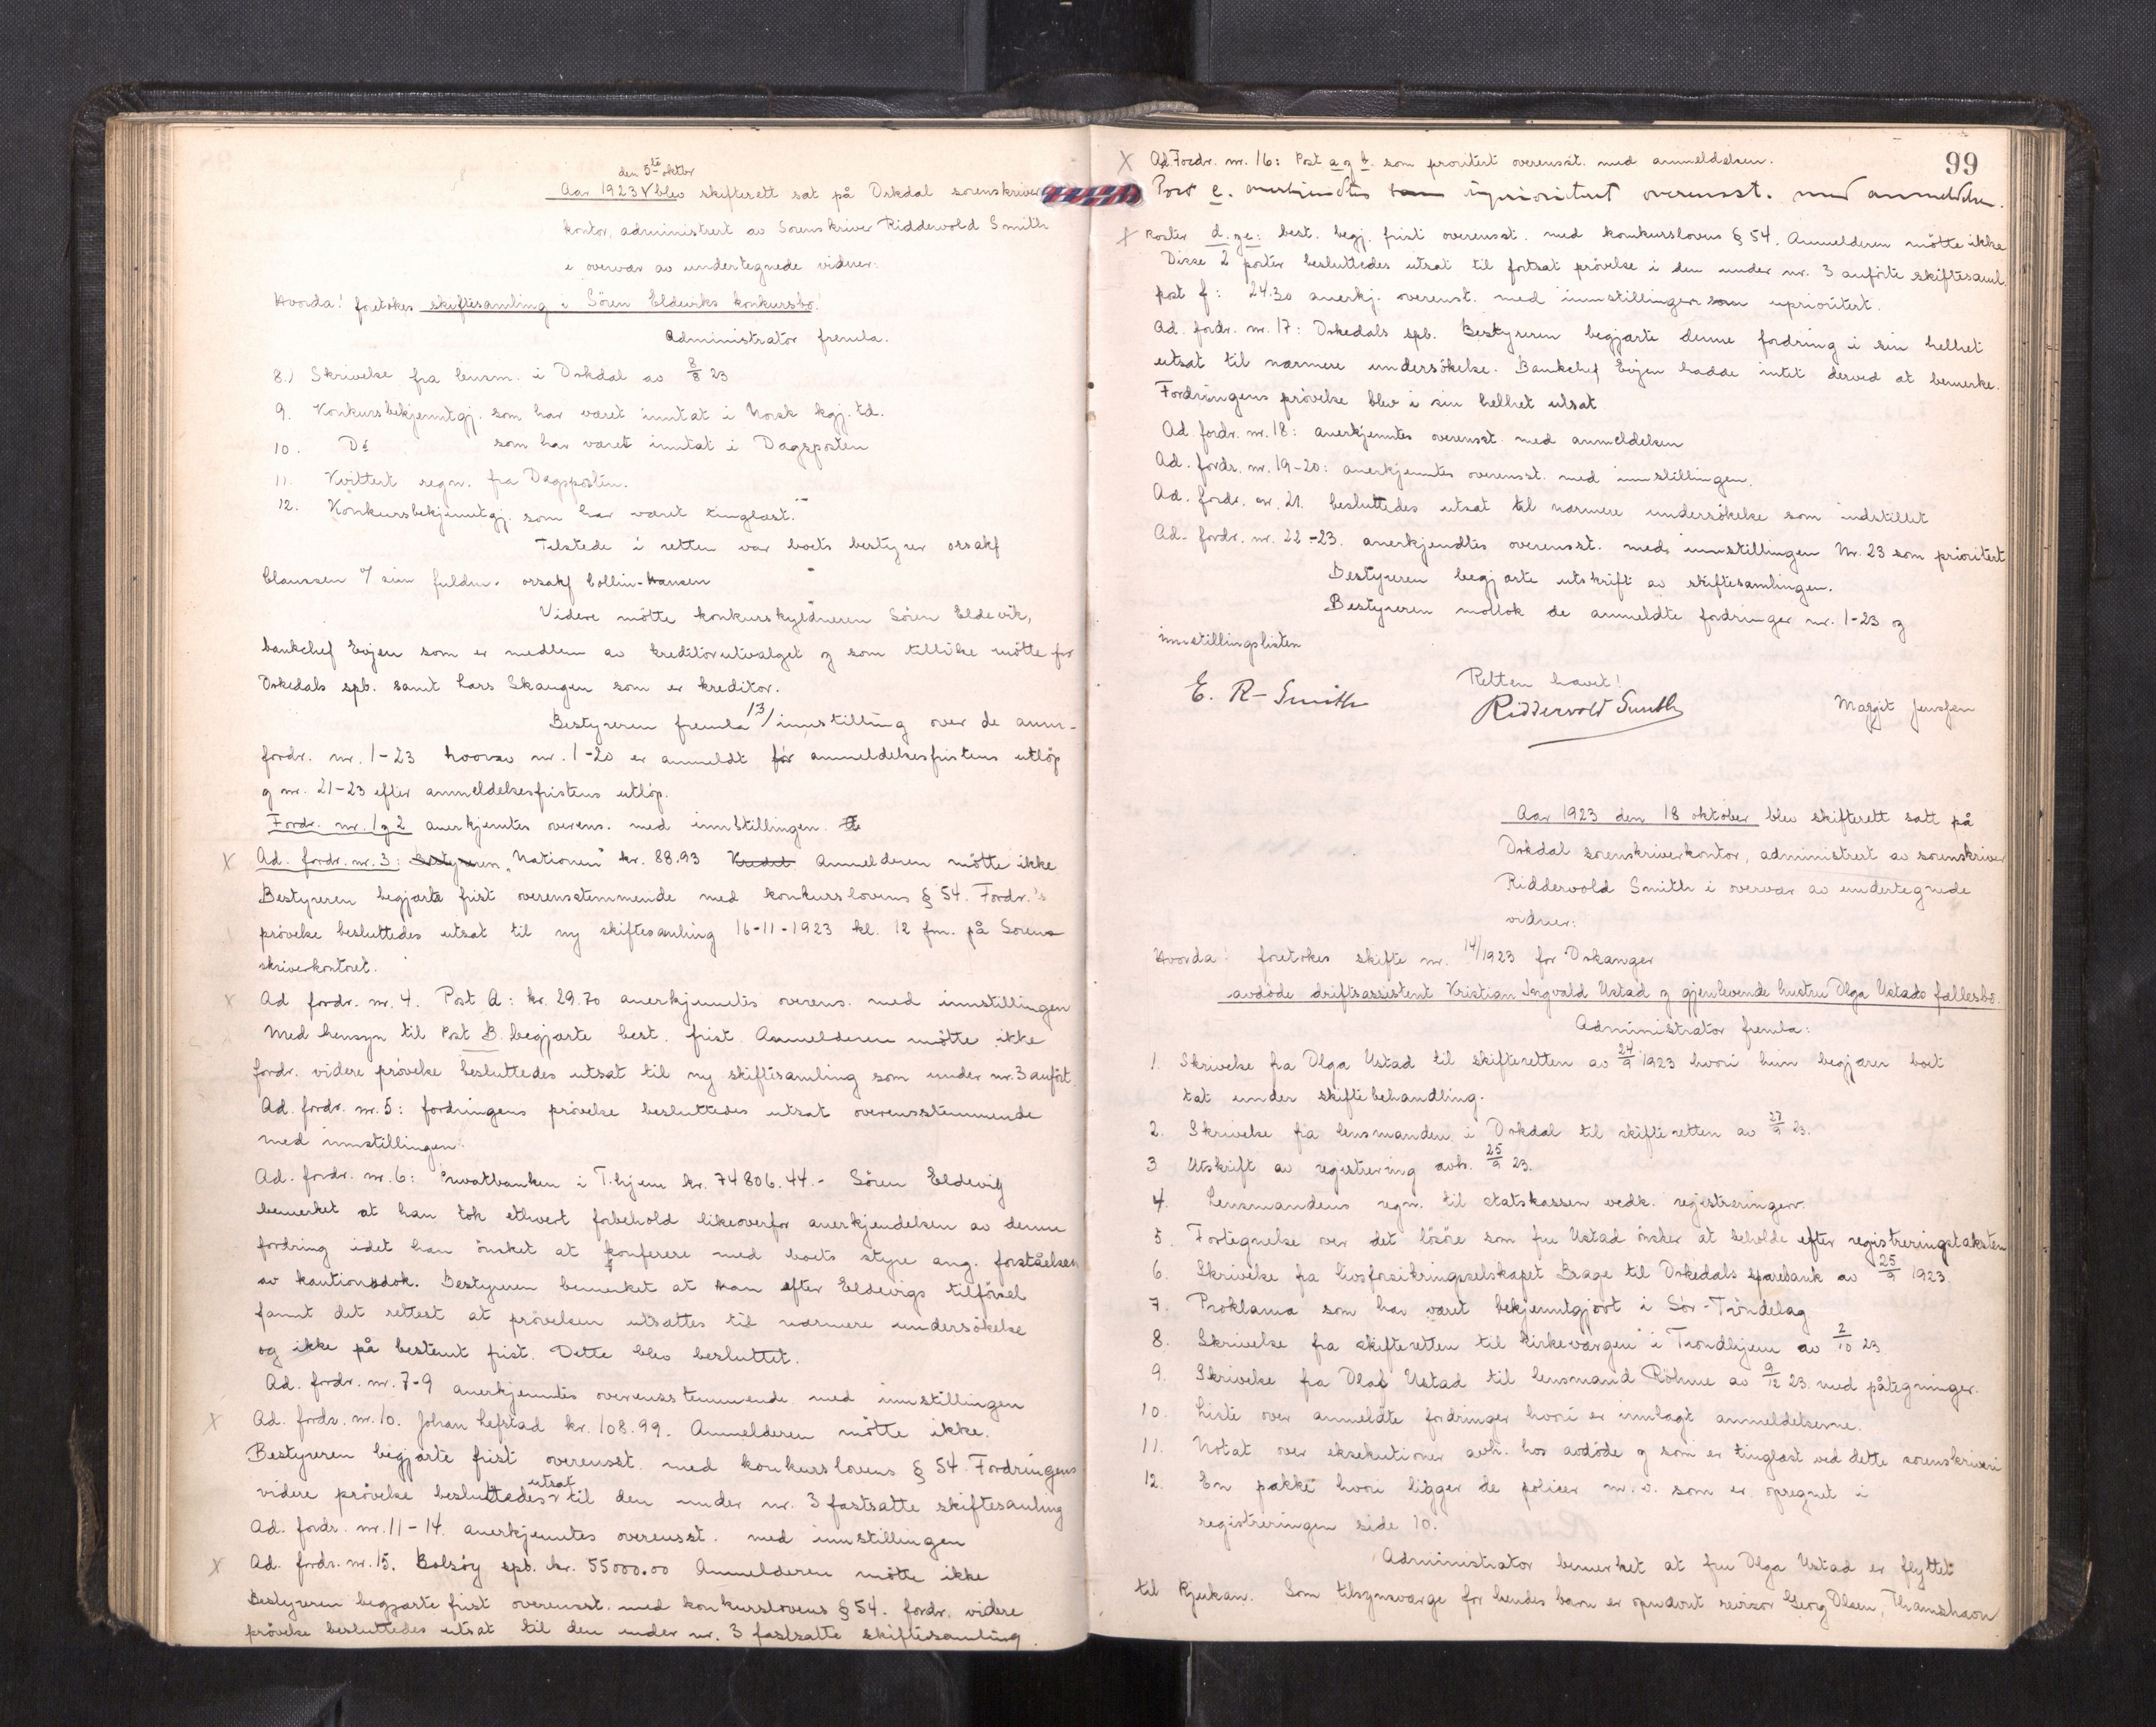 den 5te oktbr
Aar 1923 blev skifterett sat på Orkdal sorenskriver
kontor, administrert av Sorenskriver Riddervold Smith
i overvær av undertegnede vidner:
Hvorda! foretokes skiftesamling i Sören Eldeviks konkursbo!
Administrator fremla.
8.) Skrivelse fra lensm. i Orkdal av 8/8 23
9. Konkursbekjenntgj. som har været inntat i Norsk kgj. td.
10. Do som har været inntat i Dagsposten
11. Kvittert regn. fra Dagsposten.
12. Konkursbekjenntgj. som har været tinglæst.
Tilstede i retten var boets bestyrer orsakf
Claussen v/ sin fuldm. orsakf Collin-Hansen
Videre mötte konkurskyldneren Sören Eldevik,
bankchef Evjen som er medlem av kreditorutvalget og som tillike mötte for
Orkedals spb. samt Lars Skaugen som er kreditor.
Bestyreren fremla 13/ innstilling over de anm-
fordr. nr. 1-23 hvorav nr. 1-20 er anmeldt för anmeldelsesfristens utlöp
og nr. 21-23 efter anmeldelsesfristens utlöp.
Fordr. nr. 1 og 2 anerkjenntes overens. med innstillingen.
X Ad. fordr. nr. 3: Bestyreren "Nationen" kr. 88.93 Kredit Anmelderen mötte ikke
Bestyreren begjærte frist overensstemmende med konkurslovens § 54. Fordr.'s
prövelse besluttedes utsat til ny skiftesamling 16-11-1923 kl. 12 fm. på Soren-
skriverkontoret.
X Ad fordr. nr. 4. Post A: kr. 29.70 anerkjenntes overens. med innstillingen
Med hensyn til Post B. begjærte best. frist. Anmelderen mötte ikke
fordr. videre prövelse besluttedes utsat til ny skiftesamling som under nr. 3 anfört
Ad. fordr. nr. 5: fordringens prövelse besluttedes utsat overensstemmende
med innstillingen.
Ad. fordr. nr. 6: Privatbanken i T.hjem kr. 74806.44.- Sören Eldevig
bemerket at han tok ethvert forbehold likeoverfor anerkjendelsen av denne
fordring idet han önsket at konferere med boets styre ang. forståelsen
av kautionsdok. Bestyreren bemerket at han efter Eldevigs tilförsel
fannt det rettest at prövelsen utsattes til nærmere undersökelse
og ikke på bestemt frist. Dette blev besluttet.
Ad. fordr. nr. 7-9 anerkjenntes overensstemmende med innstillingen
X Ad. fordr. nr. 10. Johan Lefstad kr. 108.99. Anmelderen mötte ikke.
Bestyreren begjærte frist overensst. med konkurslovens § 54. Fordringens
videre prövelse besluttedes utsat til den under nr. 3 fastsatte skiftesamling
Ad. fordr. nr. 11-14. anerkjenntes overensst. med innstillingen
X Ad. fordr. nr. 15. Bolsöy spb. kr. 55000.00 Anmelderen mötte ikke
Bestyreren begjærte frist overensst. med konkurslovens § 54. fordr. videre
prövelse besluttedes utsat til den under nr. 3 fastsatte skiftesamling.
99
X Ad. Fordr. nr. 16: Post a og b. som prioritert overensst. med anmeldelsen.
Post c. anerkjendtes som uprioritert overensst. med anmeldelsen.
X Poster d. og e: best. begj. frist overensst. med konkurslovens § 54. Anmelderen mötte ikke
Disse 2 poster besluttedes utsat til fortsat prövelse i den under nr. 3 anförte skiftesaml.
post f: 24.30 anerkj. overenst. med innstillingen som uprioritert.
Ad. fordr. nr. 17: Orkedals spb. Bestyreren begjærte denne fordring i sin helhet
utsat til nærmere undersökelse. Bankchef Evjen hadde intet derved at bemerke.
Fordringens prövelse blev i sin helhet utsat
Ad. fordr. nr. 18: anerkjenntes overensst. med anmeldelsen
Ad. fordr. nr. 19-20: anerkjenntes overensst. med innstillingen.
Ad. fordr. nr. 21. besluttedes utsat til nærmere undersökelse som indstillet
Ad. fordr. nr. 22-23. anerkjendtes overensst. med innstillingen Nr. 23 som prioritert
Bestyreren begjærte utskrift av skiftesamlingen.
Bestyreren mottok de anmeldte fordringer nr. 1-23 og
innstillingslisten
Retten hævet!
E. R-Smith Riddervold Smith Margit Jenssen
Aar 1923 den 18 oktober blev skifterett satt på
Orkdal sorenskriverkontor, administrert av sorenskriver
Riddervold Smith i overvær av undertegnede
vidner:
Hvorda! foretokes skifte nr. 14/1923 for Orkanger
avdöde driftsassistent Kristian Ingvald Ustad og gjenlevende hustru Olga Ustads fællesbo.
Administrator fremla:
1. Skrivelse fra Olga Ustad til skifteretten av 24/9 1923 hvori hun begjærer boet
tat under skiftebehandling.
2. Skrivelse fra lensmanden i Orkdal til skifteretten av 27/9 23.
3 Utskrift av registrering avh. 25/9 23.
4. Lensmandens regn. til statskassen vedk. registreringen.
5. Fortegnelse over det lösöre som fru Ustad önsker at beholde efter registreringstaksten
6. Skrivelse fra livsforsikringsselskapet Brage til Orkedals sparebank av 25/9 1923.
7. Proklama som har været bekjenntgjort i Sör-Tröndelag
8. Skrivelse fra skifteretten til kirkeværgen i Trondhjem av 2/10 23.
9. Skrivelse fra Olaf Ustad til lensmand Röhme av 9/12 23. med påtegninger.
10. Liste over anmeldte fordringer hvori er innlagt anmeldelserne.
11. Notat over eksekutioner avh. hos avdöde og som er tinglæst ved dette sorenskriveri
12. En pakke hvori ligger de policer m.v. som er opregnet i
registreringen side 10.
Administrator bemerket at fru Olga Ustad er flyttet
til Rjukan. Som tilsynsværge for hendes barn er opnævnt revisor Georg Olsen, Thamshavn